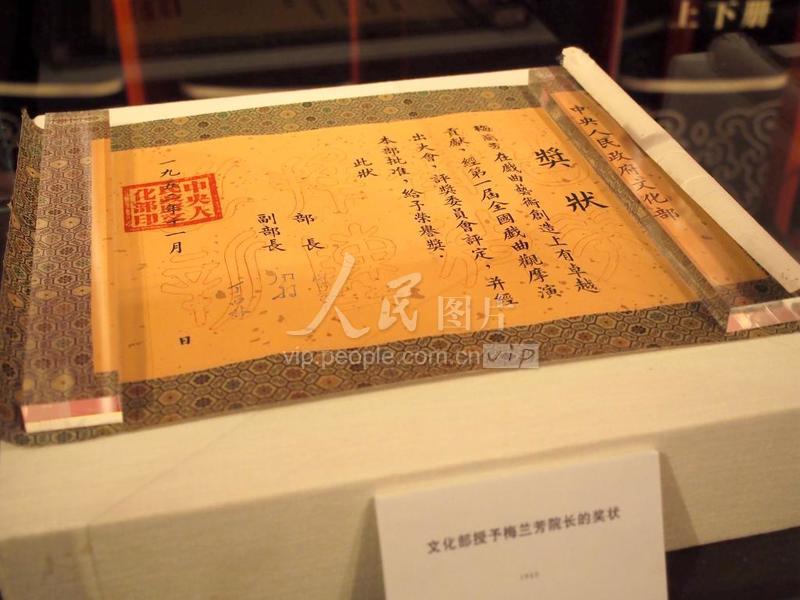 上下册
中央人民政府文化部
獎狀
梅蘭芳在戲曲藝術創造上有卓越
貢獻，經第一屆全國戲曲觀摩演
出大會，評獎委員會評定，并經
本部批准，給予榮譽獎。
此狀
部長
副部長
一九五二年十一月 日
中央人
民政府
文化部印
人民图片
vip.people.com.cn
VIP
文化部授予梅兰芳院长的奖状